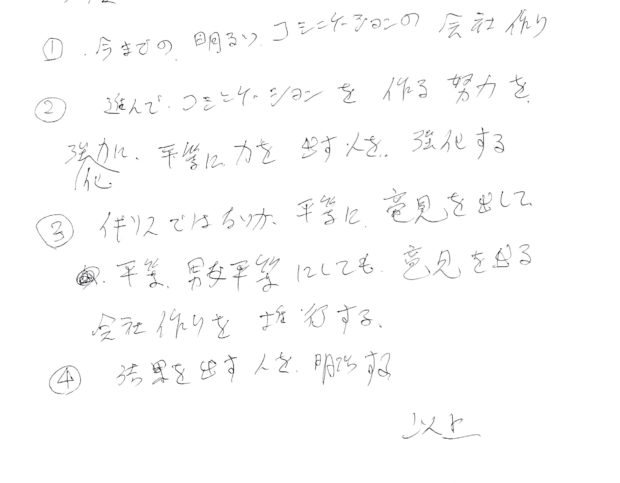 ① 今までの、明るい コミニケーションの 会社作り
② 進んで、コミニケーションを 作る 努力を、
強力に、平等に 力を 出す人を、強化する
化
③ イギリスではないか、平等に、意見を出して、
平等、男女平等 にしても、意見を出る
会社作りを 推行する、
④ 結果を出す人を、明確する
以上